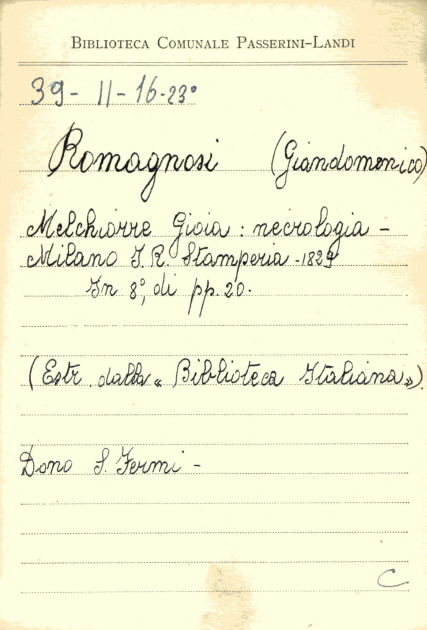 BIBLIOTECA COMUNALE PASSERINI-LANDI
39 - II - 16 - 23°
Romagnosi (Giandomenico)
Melchiorre Gioia : necrologia -
Milano I. R. Stamperia - 1829
In 8°, di pp. 20.
(Estr. dalla « Biblioteca Italiana »).
Dono S. Fermi -
C